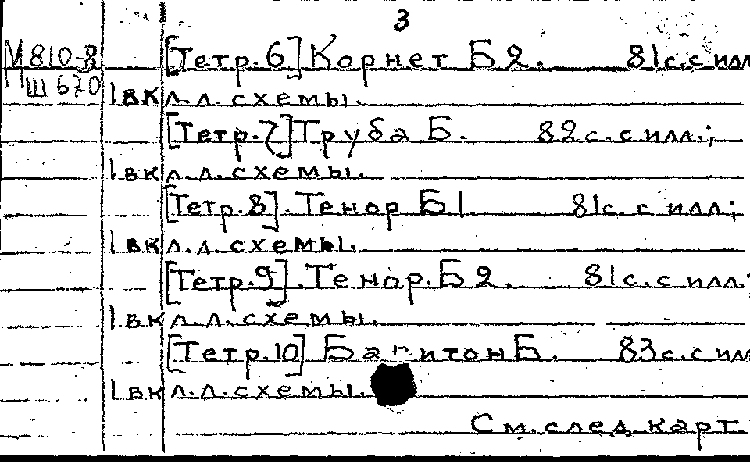 3
М810-8 [Тетр.6] Корнет Б 2. 81с.с илл
Ш 670 1 вкл.л.схемы.
[Тетр.7] Труба Б. 82с.с илл.;
1 вкл.л.схемы.
[Тетр.8]. Тенор Б 1. 81с. с илл;
1 вкл.л схемы.
[Тетр.9]. Тенор. Б 2. 81с.с илл.;
1.вкл.л.схемы.
[Тетр.10] Баритон Б. 83с.с илл
1 вкл.л.схемы.
См.след карт.